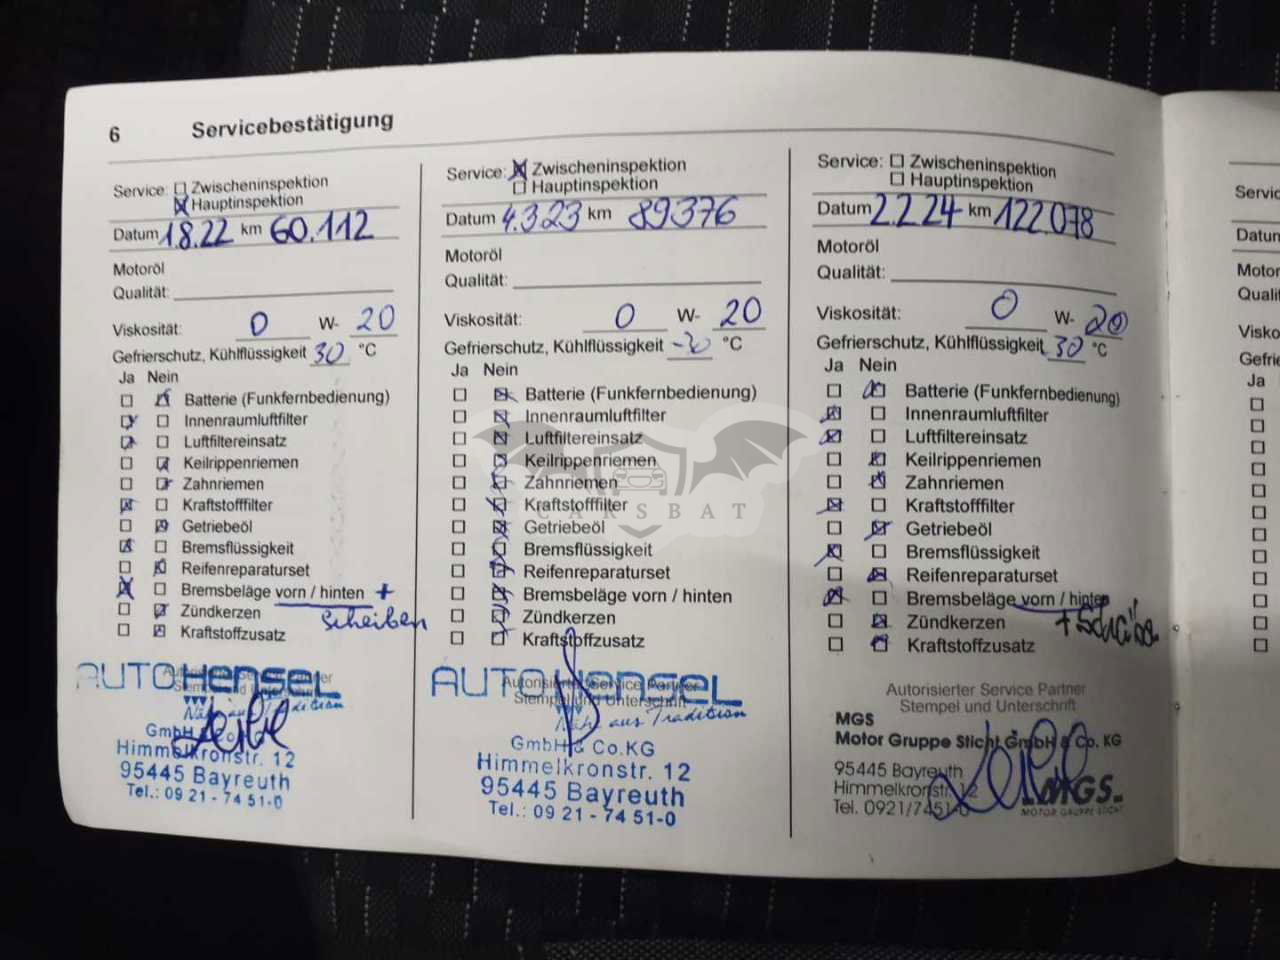 6 Servicebestätigung
Service: Zwischeninspektion
Hauptinspektion
Datum 1.8.22 km 60.112
Motoröl
Qualität:
Viskosität: 0 W- 20
Gefrierschutz, Kühlflüssigkeit 30 °C
Ja Nein
Batterie (Funkfernbedienung)
Innenraumluftfilter
Luftfiltereinsatz
Keilrippenriemen
Zahnriemen
Kraftstofffilter
Getriebeöl
Bremsflüssigkeit
Reifenreparaturset
Bremsbeläge vorn / hinten +
Scheiben
Zündkerzen
Kraftstoffzusatz
AUTO HENSEL
GmbH & Co.KG
Himmelkronstr. 12
95445 Bayreuth
Tel.: 09 21 - 74 51-0
Service: Zwischeninspektion
Hauptinspektion
Datum 4.3.23 km 89376
Motoröl
Qualität:
Viskosität: 0 W- 20
Gefrierschutz, Kühlflüssigkeit -30 °C
Ja Nein
Batterie (Funkfernbedienung)
Innenraumluftfilter
Luftfiltereinsatz
Keilrippenriemen
Zahnriemen
Kraftstofffilter
Getriebeöl
Bremsflüssigkeit
Reifenreparaturset
Bremsbeläge vorn / hinten
Zündkerzen
Kraftstoffzusatz
AUTO HENSEL
Autorisierter Service Partner
Stempel und Unterschrift
aus Tradition
GmbH & Co.KG
Himmelkronstr. 12
95445 Bayreuth
Tel.: 09 21 - 74 51-0
Service: Zwischeninspektion
Hauptinspektion
Datum 2.2.24 km 122.078
Motoröl
Qualität:
Viskosität: 0 W- 20
Gefrierschutz, Kühlflüssigkeit 30 °C
Ja Nein
Batterie (Funkfernbedienung)
Innenraumluftfilter
Luftfiltereinsatz
Keilrippenriemen
Zahnriemen
Kraftstofffilter
Getriebeöl
Bremsflüssigkeit
Reifenreparaturset
Bremsbeläge vorn / hinten
Zündkerzen
Kraftstoffzusatz
Autorisierter Service Partner
Stempel und Unterschrift
MGS
Motor Gruppe Sticht GmbH & Co. KG
95445 Bayreuth
Himmelkronstr. 12
Tel. 0921/7451-0
MGS
MOTOR GRUPPE STICHT
CARSBAT
Ja